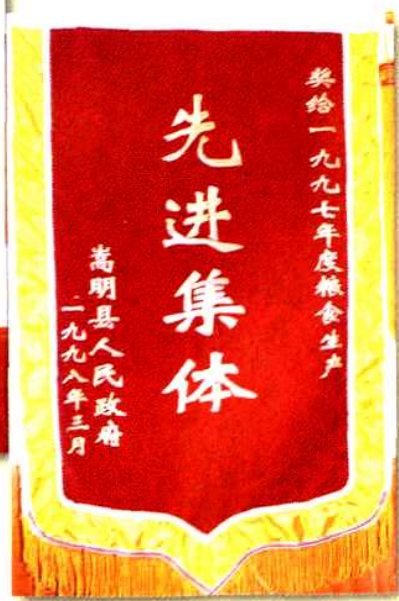 奖给一九九七年度粮食生产
先进集体
嵩明县人民政府
一九九八年三月